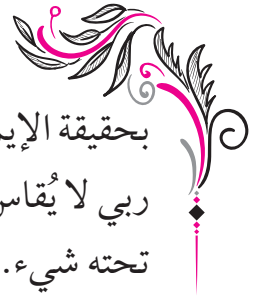 بحقيقة
ربي لا يُقاس
تحته شيء.